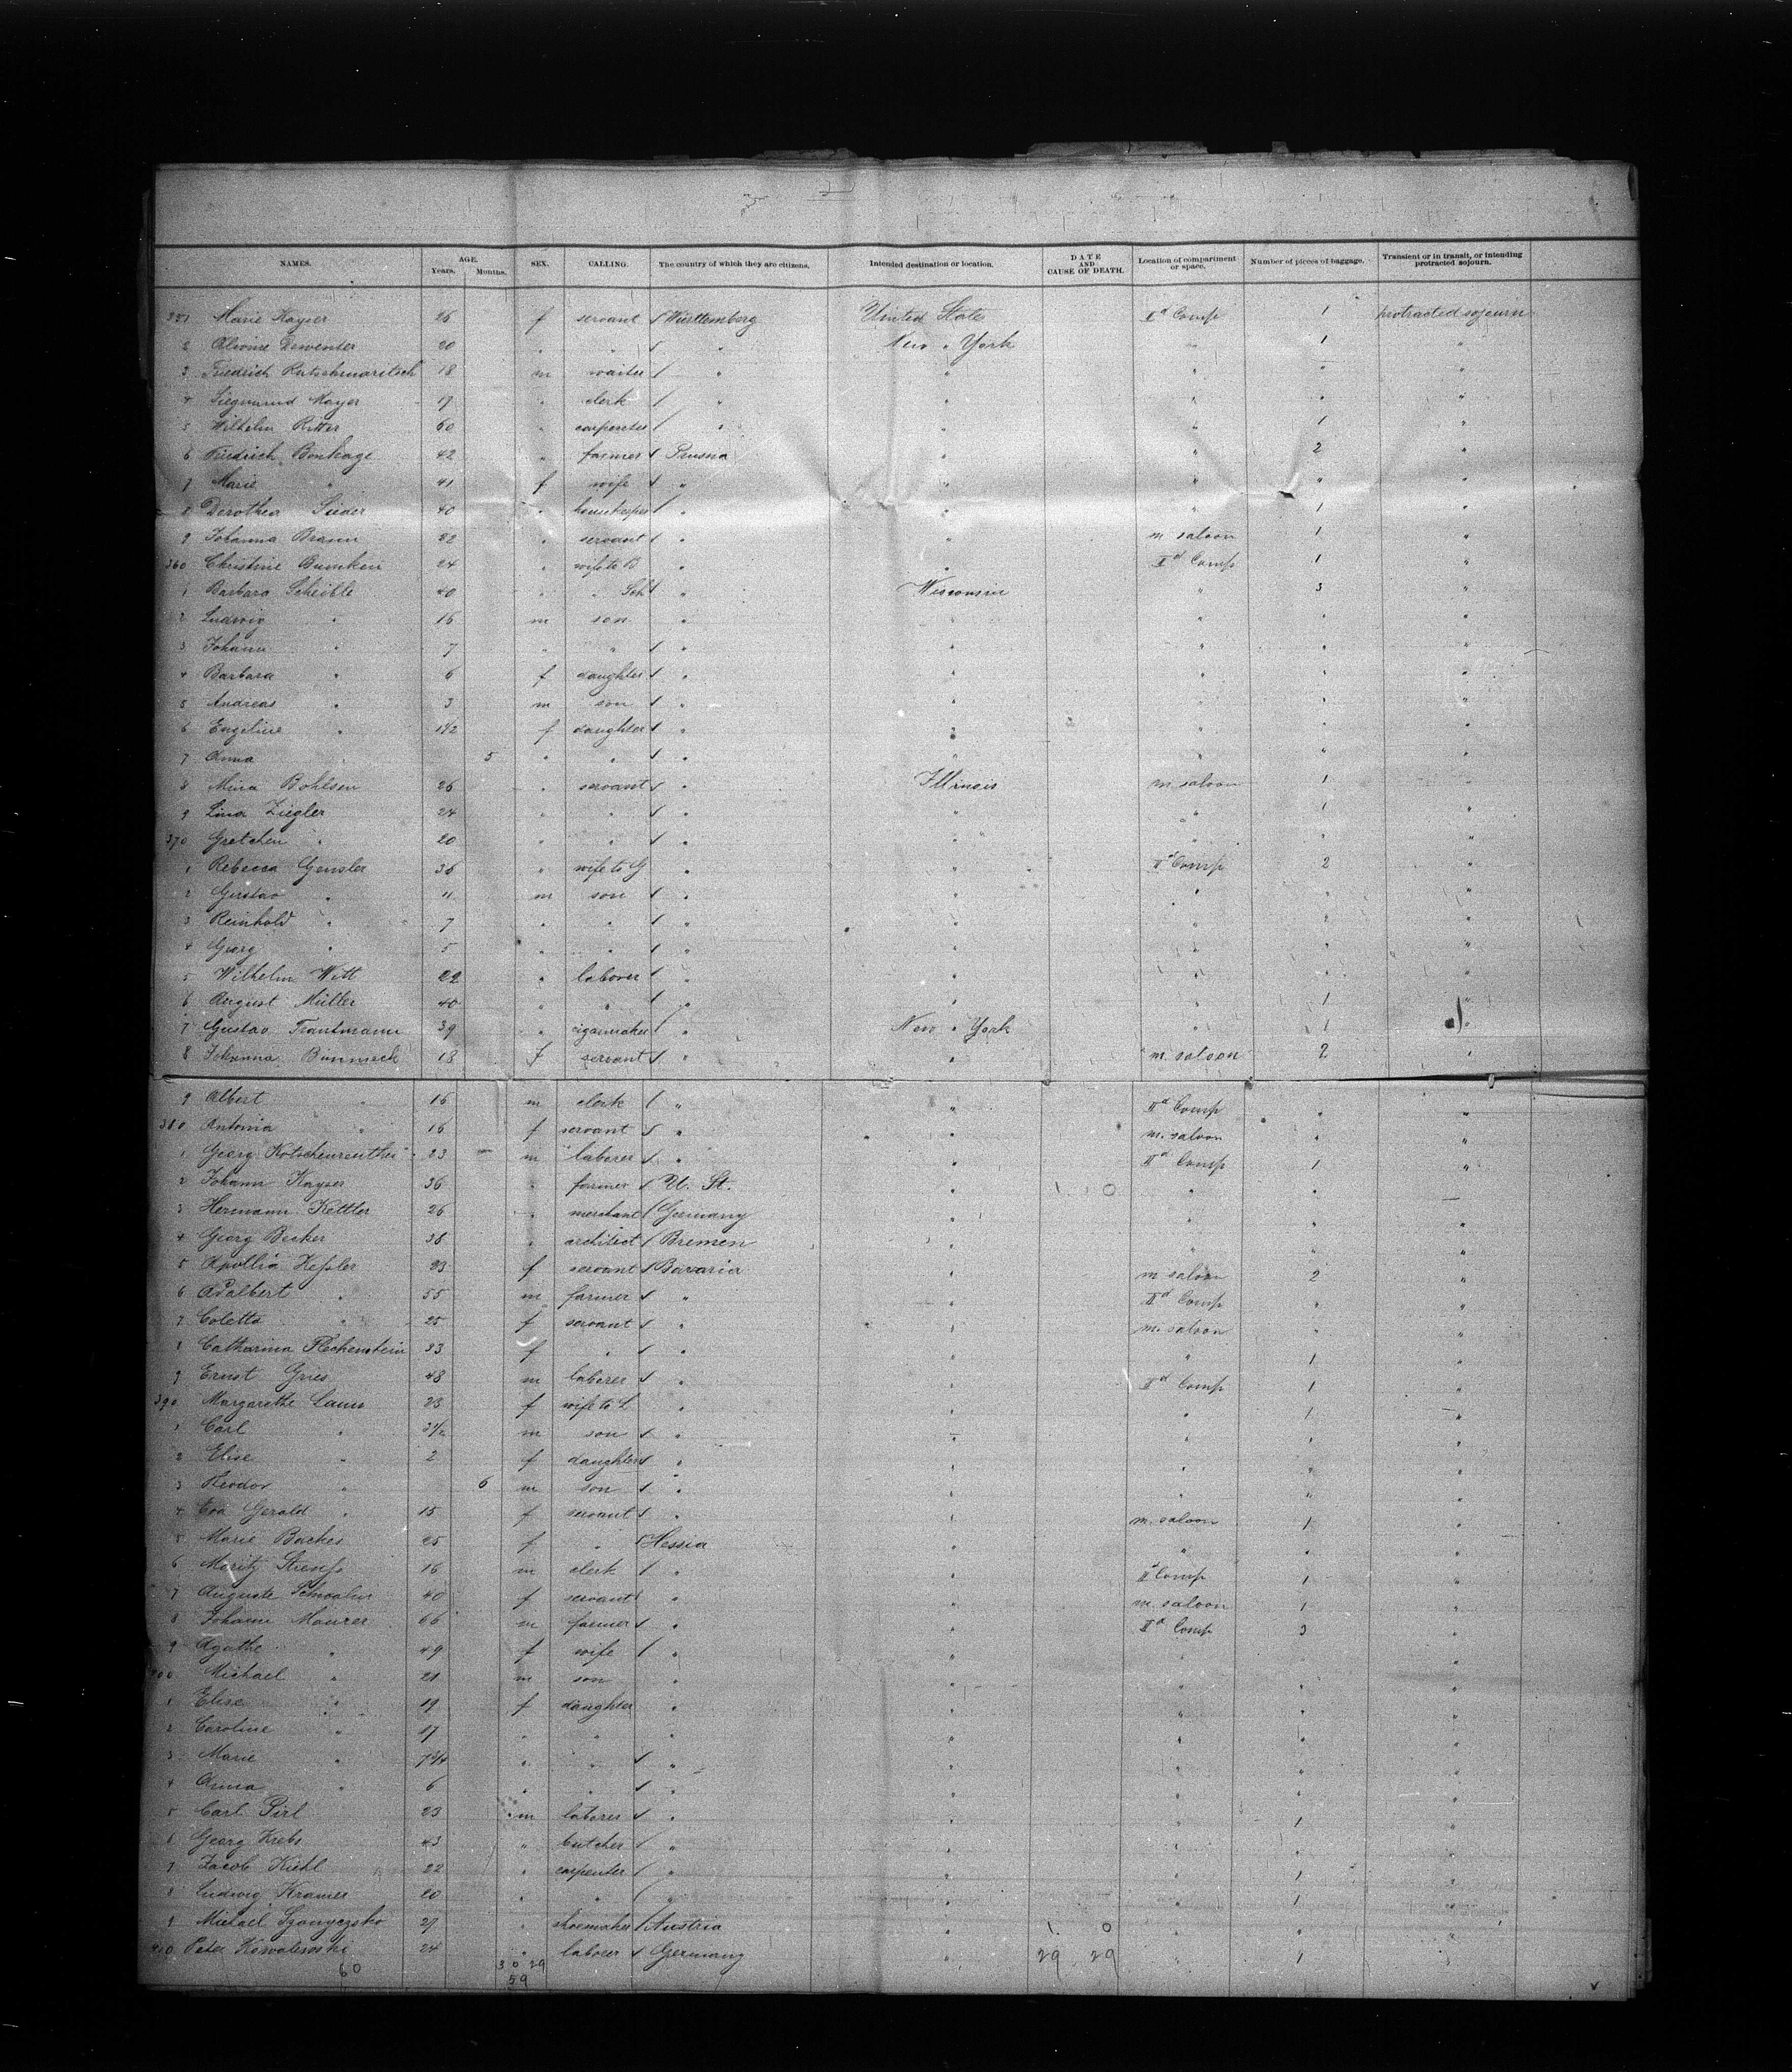 NAMES. AGE. Years. Months. SEX. CALLING. The country of which they are citizens. Intended destination or location. DATE AND CAUSE OF DEATH. Location of compartment or space. Number of pieces of baggage. Transient or in transit, or intending protracted sojourn.
351 Marie Kayser 26 f servant Württemberg United States IId Comp 1 protracted sojourn
2 20 " " " New York " 1 "
3 Friedrich 18 m waiter " " " " "
4 Siegmund Mayer 17 " clerk " " " " "
5 Wilhelm Ritter 60 " carpenter " " " 1 "
6 Friedrich Bonhage 42 " farmer Prussia " " 2 "
7 Marie " 41 f wife " " " " "
8 Dorothea Sieder 40 " housekeeper " " " 1 "
9 Johanna Braun 22 " servant " " m saloon 1 "
360 Christine Bumken 24 " wife to B " " IId Comp 1 "
1 Barbara Scheible 40 " " Sch " Wisconsin " 3 "
2 Ludwig " 16 m son " " " " "
3 Johann " 7 " " " " " " "
4 Barbara " 6 f daughter " " " " "
5 Andreas " 3 m son " " " " "
6 Engeline " 1 1/2 f daughter " " " " "
7 Anna 5 " " " " " " "
8 Mina Bohlsen 26 " servant " Illinois m. saloon 1 "
9 Lina Ziegler 24 " " " " " 1 "
370 Gretchen " 20 " " " " " " "
1 Rebecca Gensler 36 " wife to G " " IId Comp 2 "
2 Gustav " 11 m son " " " " "
3 Reinhold " 7 " " " " " " "
4 Georg " 5 " " " " " " "
5 Wilhelm Witt 22 " laborer " " " " "
6 August Müller 40 " " " " " 1 "
7 Gustav Trautmann 39 " cigarmaker " New York " 1 "
8 Johanna 18 f servant " " m. saloon 2 "
9 Albert " 16 m clerk " " IId Comp " "
380 Antonia " 16 f servant " " m. saloon " "
1 Georg 23 m laborer " " IId Comp 1 "
2 Johann Kayser 36 " farmer U. St. " 1 0 " " —
3 Hermann Kettler 26 " merchant Germany " " " "
4 Georg Becker 38 " architect Bremen " " " "
5 Apollia Keßler 23 f servant Bavaria " m saloon 2 "
6 Adalbert " 55 m farmer " " IId Comp " "
7 Coletta " 25 f servant " " m. saloon " "
8 Catharina Flechenstein 33 f " " " " 1 "
9 Ernst Gries 48 m laborer " " IId Comp 1 "
390 Margarethe Laun 23 f wife to L " " " 1 "
1 Carl " 3 1/2 m son " " " " "
2 Elise " 2 f daughter " " " " "
3 Theodor " 6 m son " " " " "
4 Eva Gerald 15 f servant " " m. saloon 1 "
5 Marie Backes 25 f " Hessia " " " "
6 Moritz Strauß 16 m clerk " " IId Comp 1 "
7 Auguste 40 f servant " " m. saloon 1 "
8 Johann Maurer 66 m farmer " " IId Comp 3 "
9 Agathe " 49 f wife " " " " "
400 Michael " 21 m son " " " " "
1 Elise " 19 f daughter " " " " "
2 Caroline " 17 " " " " " " "
3 Marie " 7 3/4 " " " " " " "
4 Anna " 6 " " " " " " "
5 Carl Pirl 23 m laborer " " " 1 "
6 Georg Krebs 43 " butcher " " " " "
7 Jacob Kiehl 22 " carpenter " " " 1 "
8 Ludwig Kramer 20 " " " " " 1 "
9 Michael 27 " shoemaker Austria " 1 0 " " "
410 Peter Kowalewski 24 " laborer Germany " 29 29 " 1 "
60 30 29
59